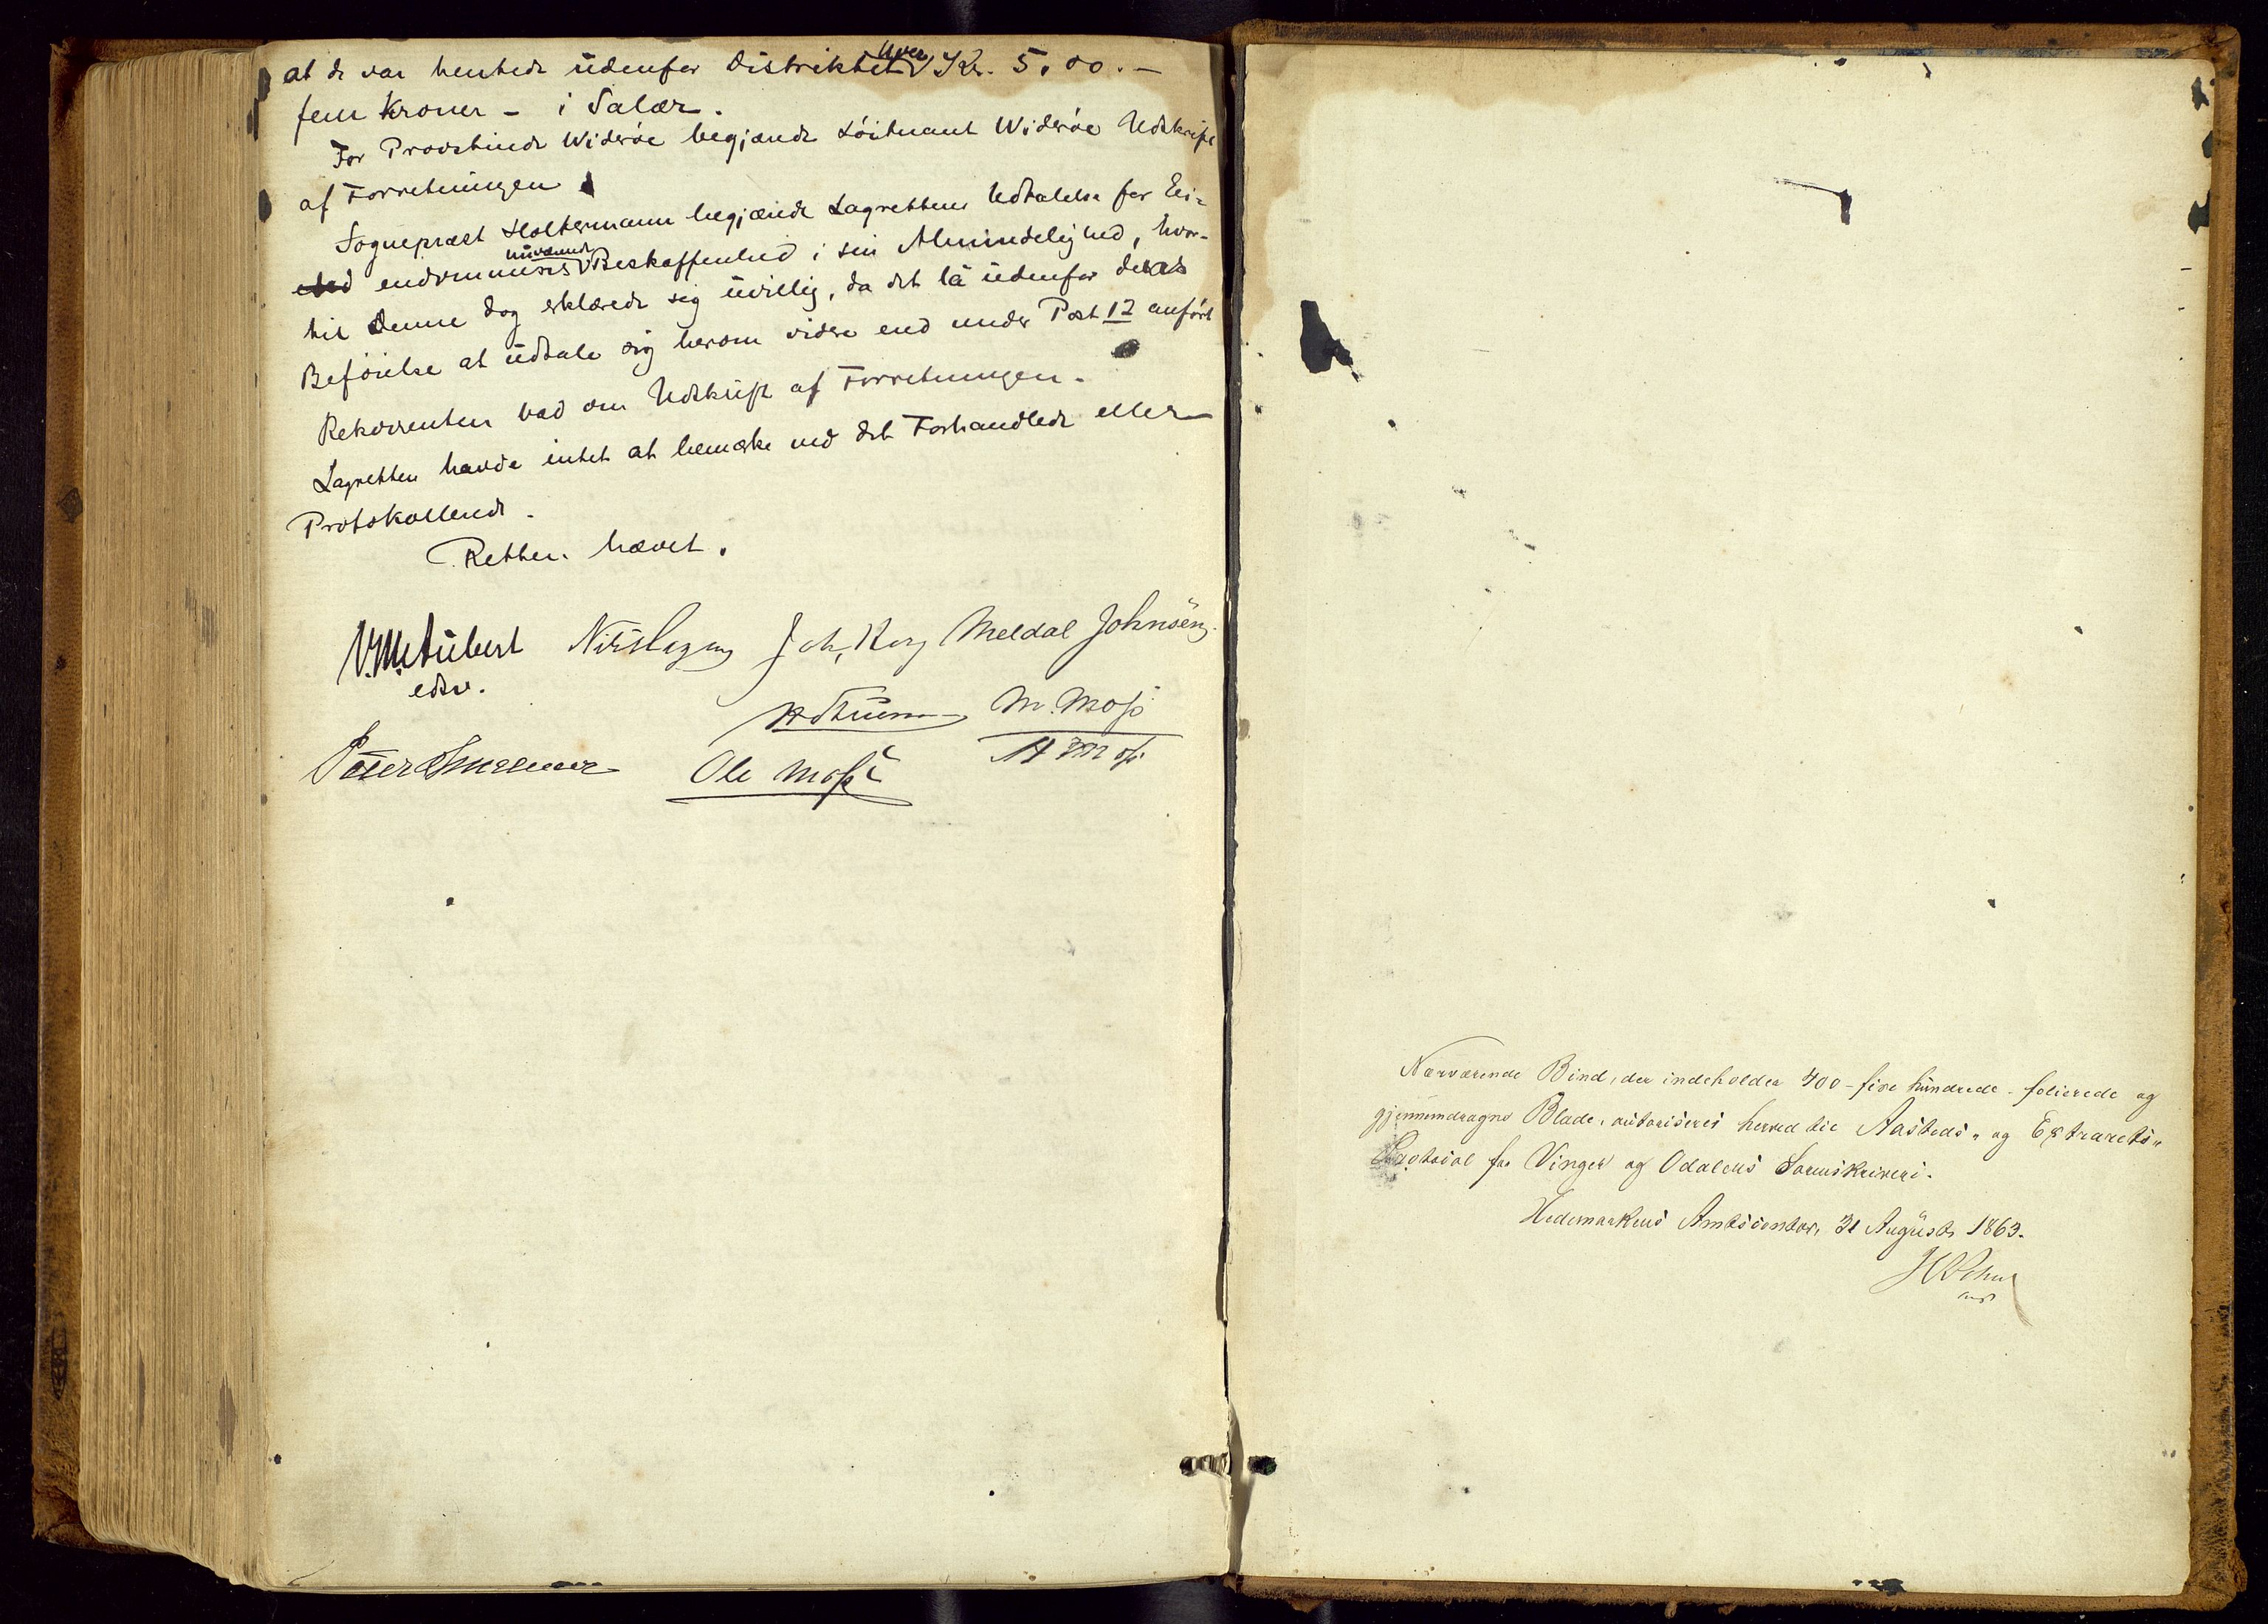 at de var hentede udenfor Distriktet hver Kr. 5.00.-
fem Kroner - i Salær.
For Provstinde Widerøe begjærede Löitnant Widerøe Udskrift
af Forretningen.
Sognepræst Holtermann begjærede Lagrettens Udtalelse for Ei-
endommens nuværende Beskaffenhed i sin Almindelighed, hvor-
til denne dog erklærede sig uvillig, da det lå udenfor deres
Beföielse at udtale sig herom videre end under Post 12 anfört
Rekvirenten bad om Udskrift af Forretningen.
Lagretten havde intet at bemærke ved det Forhandlede eller
Protokollerede.
Retten hævet.
V.M. Aubert Joh, Meldal Johnsen
edsv. M. Moss
Peter Ole Moss H Moss
Nærværende Bind, der indeholder 400 - fire hundrede - folierede og
gjennemdragne Blade, autoriseres herved til Aasteds- og Extrarets-
Protocol for Vinger og Odalens Sorenskriveri.
Hedemarkens Amtscontor, 31 August 1863.